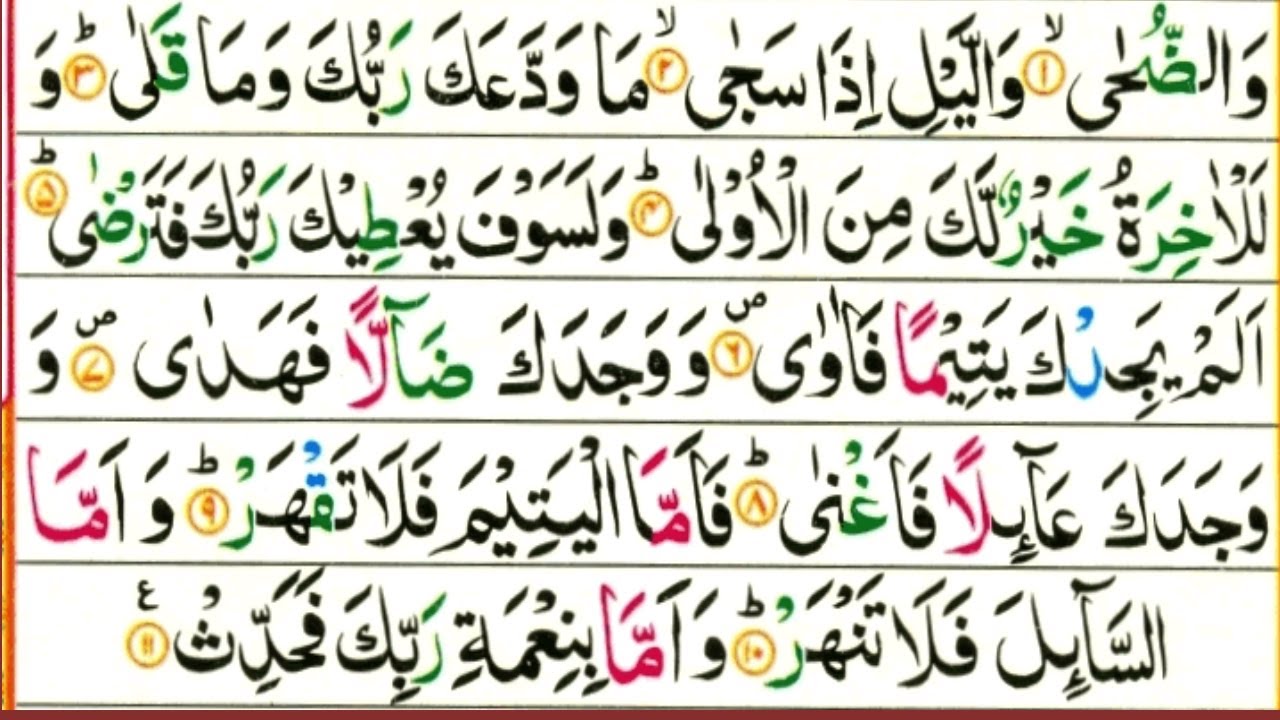 وَالضُّحٰى ۙ﴿۱﴾ وَالَّيْلِ اِذَا سَجٰى ۙ﴿۲﴾ مَا وَدَّعَكَ رَبُّكَ وَمَا قَلٰى ؕ﴿۳﴾ وَ
لَلْاٰخِرَةُ خَيْرٌ لَّكَ مِنَ الْاُوْلٰى ؕ﴿۴﴾ وَلَسَوْفَ يُعْطِيْكَ رَبُّكَ فَتَرْضٰى ؕ﴿۵﴾
اَلَمْ يَجِدْكَ يَتِيْمًا فَاٰوٰى ۪﴿۶﴾ وَوَجَدَكَ ضَآلًّا فَهَدٰى ۪﴿۷﴾ وَ
وَجَدَكَ عَآئِلًا فَاَغْنٰى ؕ﴿۸﴾ فَاَمَّا الْيَتِيْمَ فَلَا تَقْهَرْ ؕ﴿۹﴾ وَ اَمَّا
السَّآئِلَ فَلَا تَنْهَرْ ؕ﴿۱۰﴾ وَ اَمَّا بِنِعْمَةِ رَبِّكَ فَحَدِّثْ ﴿۱۱﴾ ع